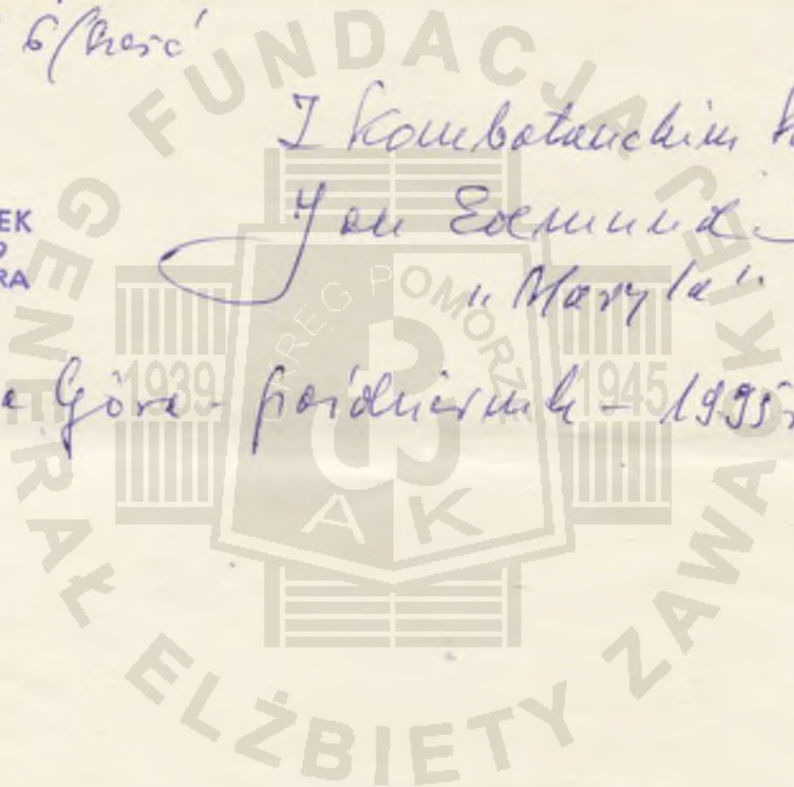 6/Cześć
Z Kombatanckim
EK
Jan Edmund
RA
"Maryla"
Góra - październik - 1995r
FUNDACJA GENERAŁ ELŻBIETY ZAWACKIEJ
OKRĘG POMORZE
1939 1945
AK